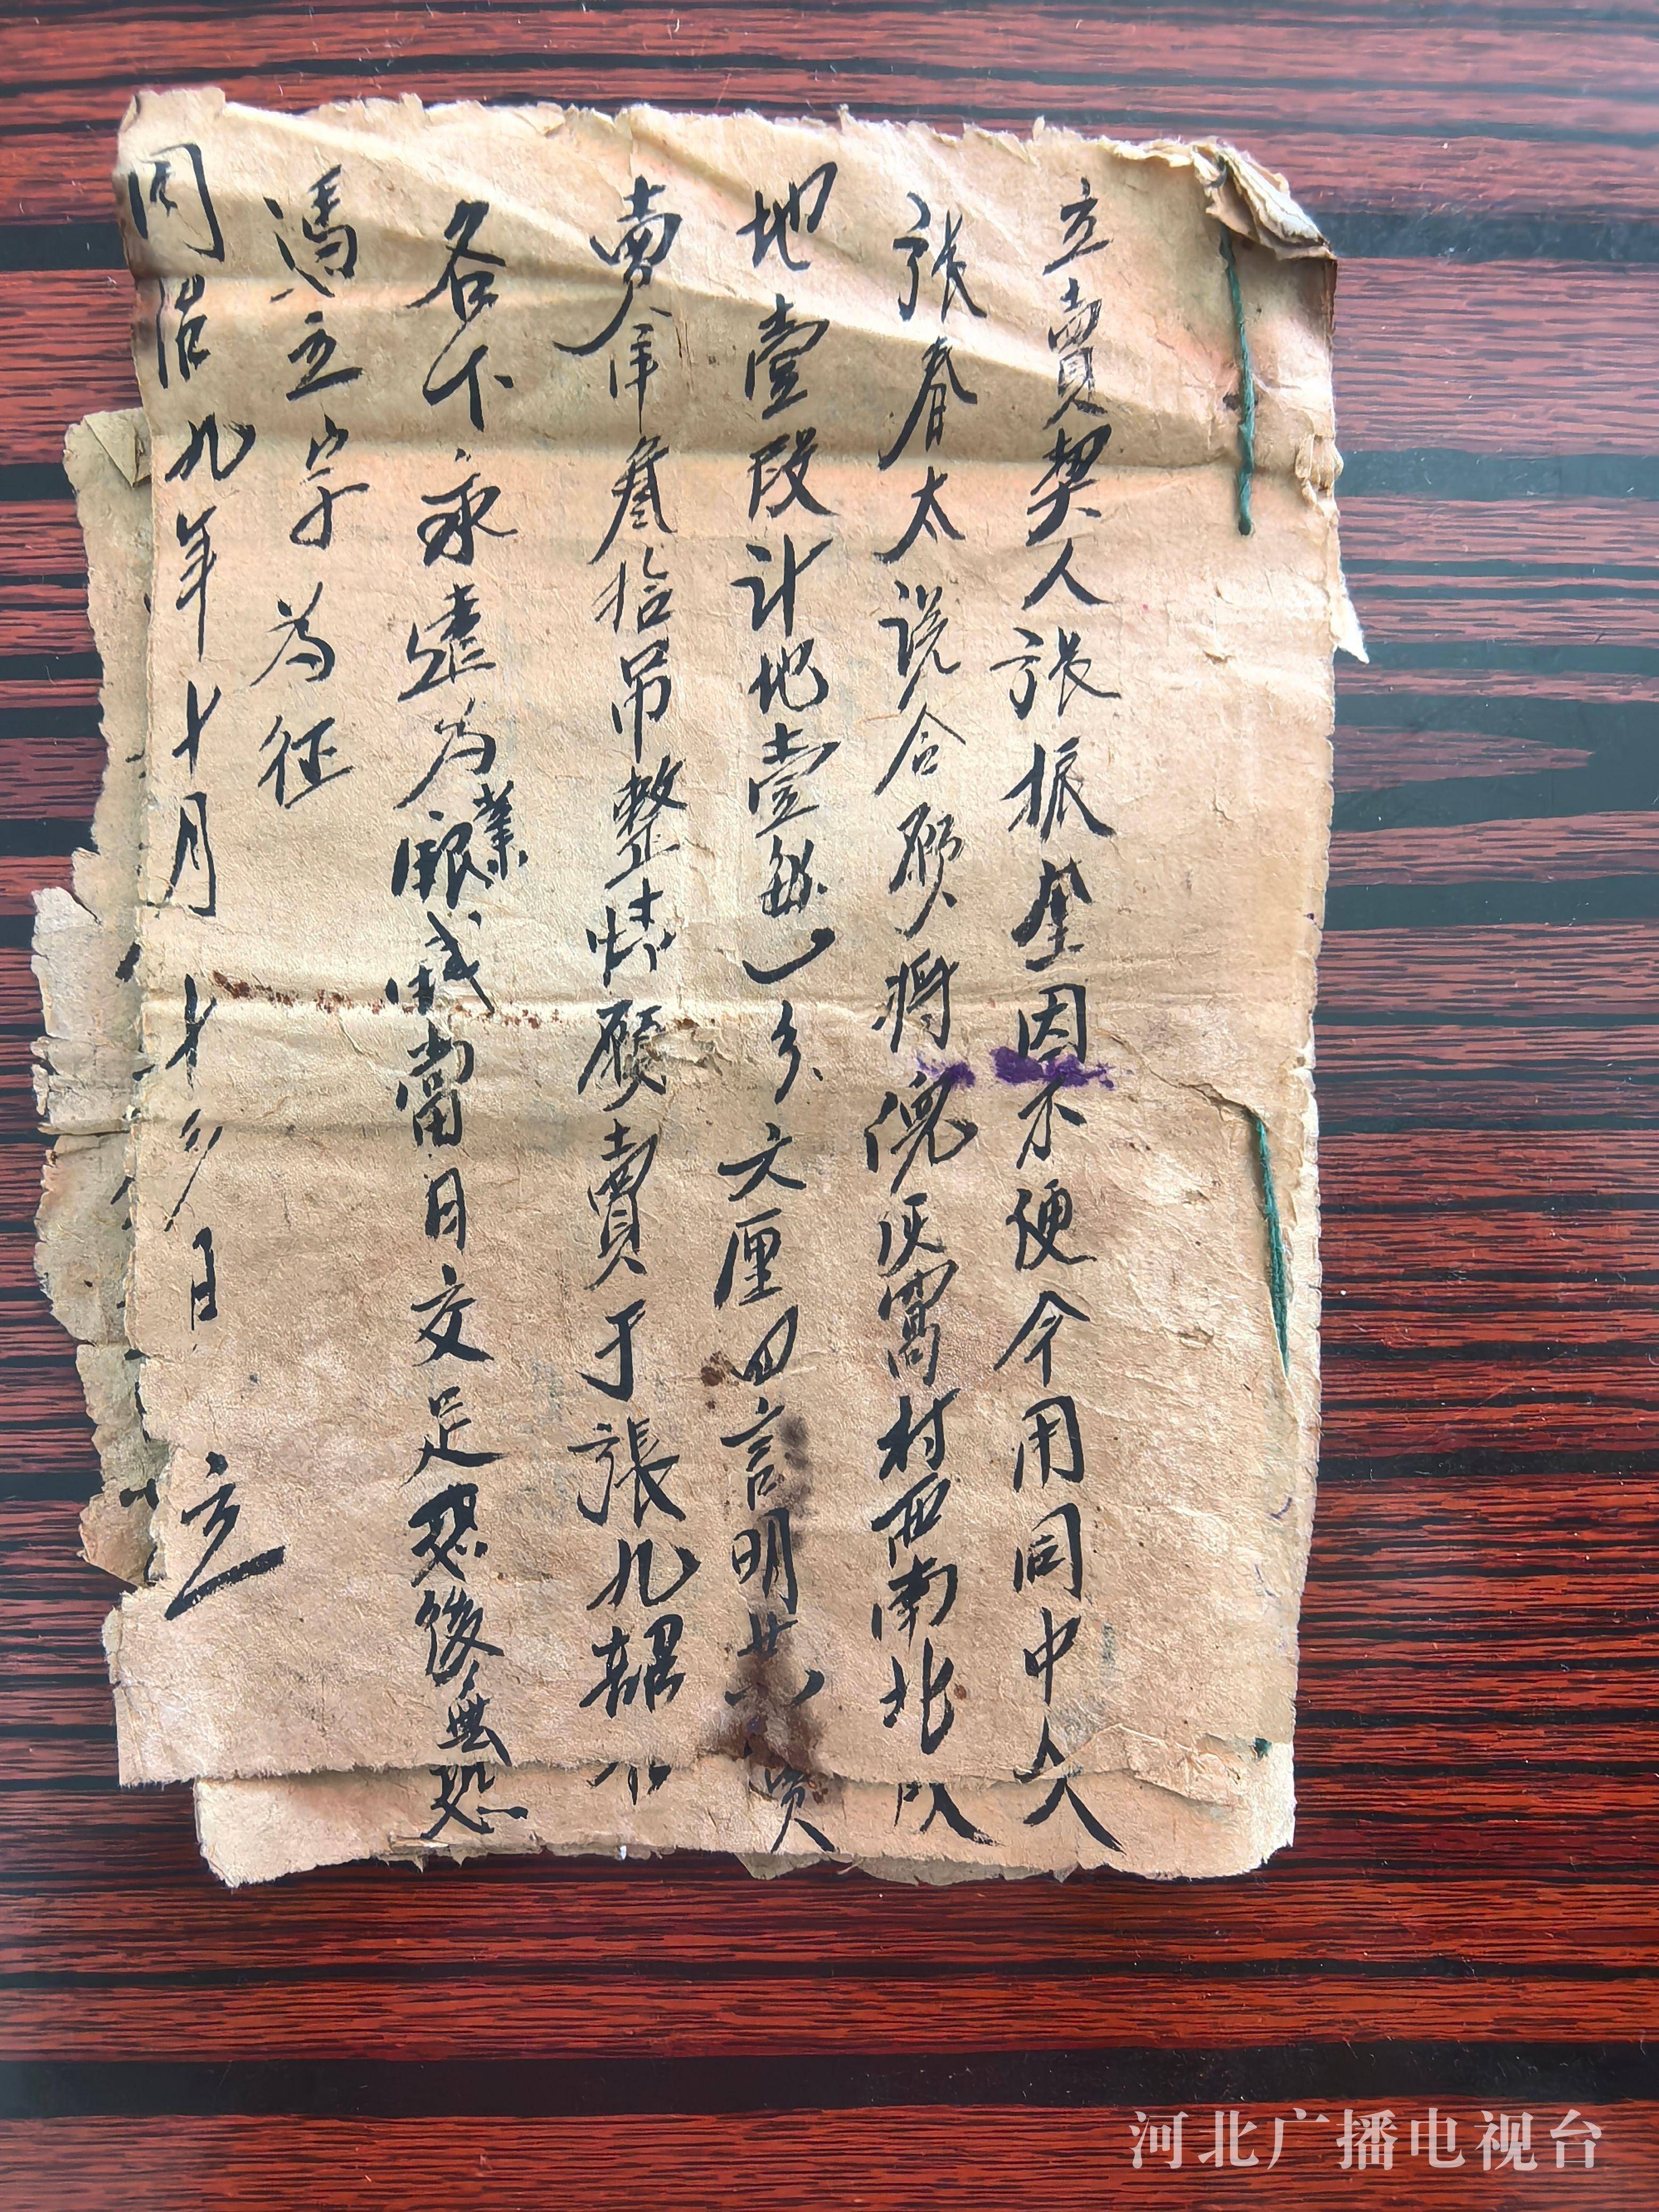 立賣契人張振全因不便今用同中人
張春太说合願將倪灰窩村西南北段
地壹段计地壹畝一分六厘四言明共賣
賣價錢叁拾吊整情願賣于張九韶名
名下永遠为業銀成當日交足恐後無憑
憑立字为征
同治九年十月十六日 立
河北广播电视台